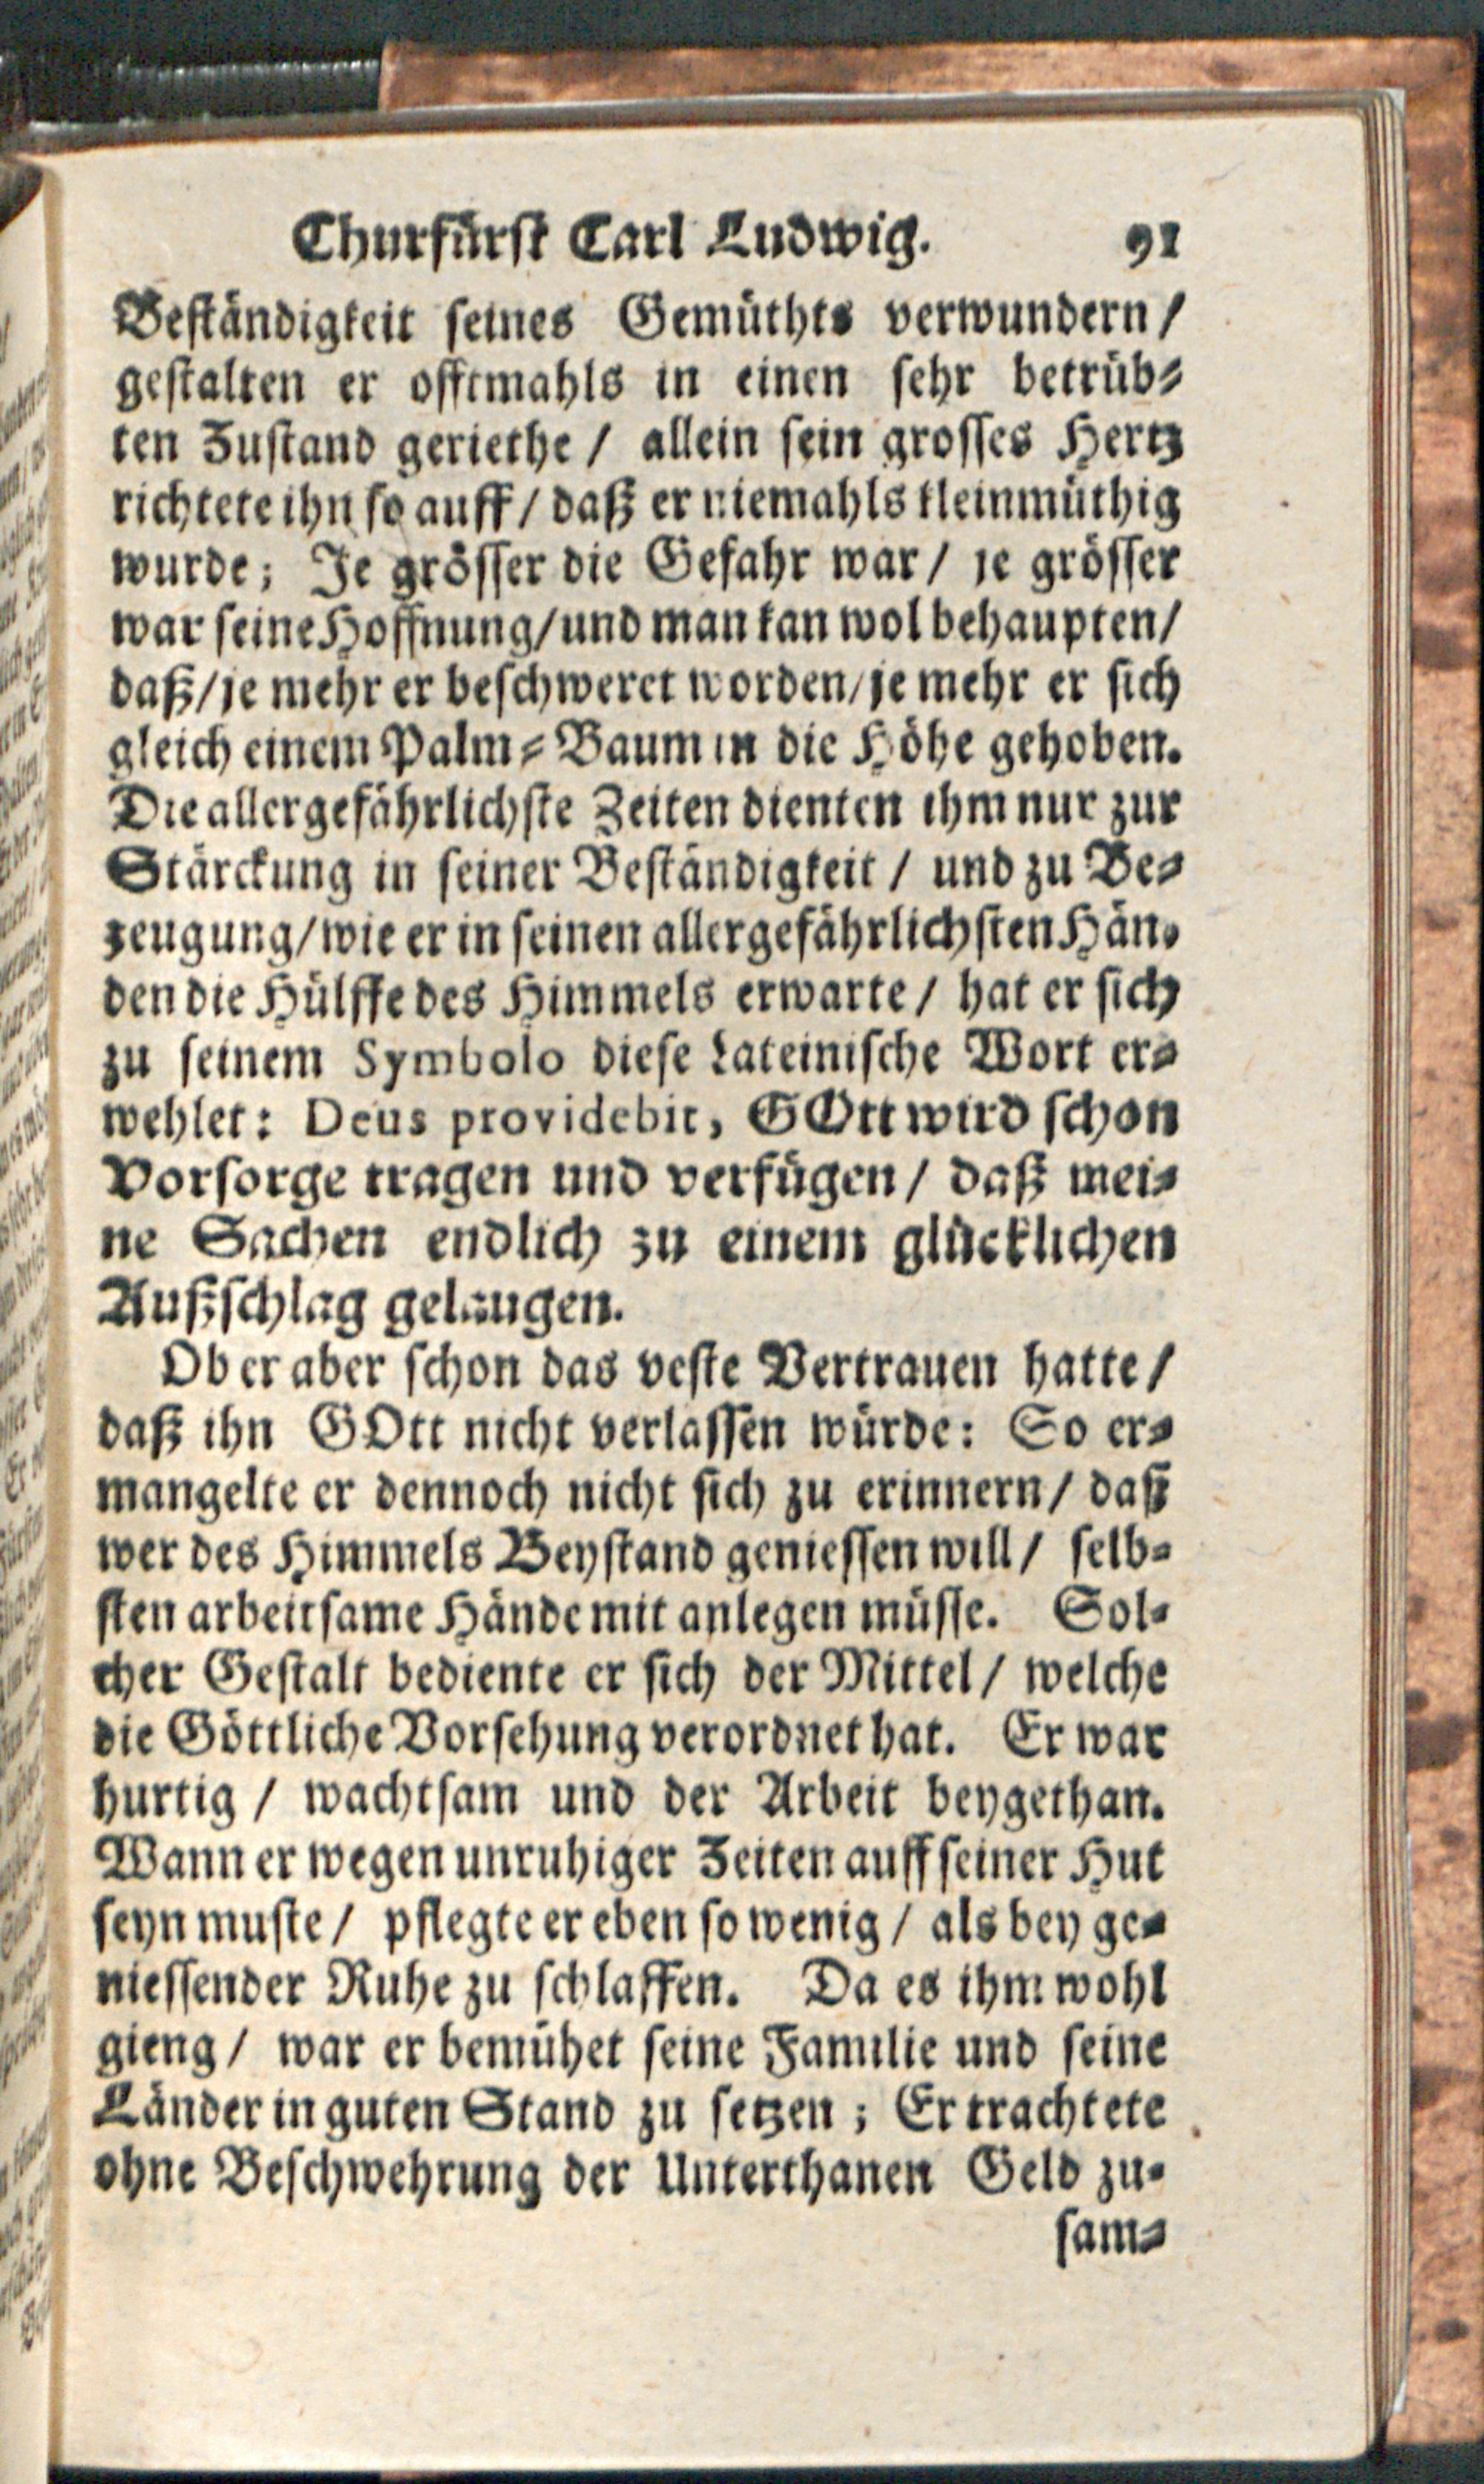 Churfürst Carl Ludwig. 91
Beständigkeit seines Gemüthts verwundern/
gestalten er offtmahls in einen sehr betrüb-
ten Zustand geriethe / allein sein grosses Hertz
richtete ihn so auff / daß er niemahls kleinmüthig
wurde; Je grösser die Gefahr war / je grösser
war seine Hoffnung/und man kan wol behaupten/
daß/je mehr er beschweret worden/je mehr er sich
gleich einem Palm-Baum in die Höhe gehoben.
Die allergefährlichste Zeiten dienten ihm nur zur
Stärckung in seiner Beständigkeit / und zu Be-
zeugung/wie er in seinen allergefährlichsten Hän-
den die Hülffe des Himmels erwarte / hat er sich
zu seinem Symbolo diese Lateinische Wort er-
wehlet: Deus providebit, GOtt wird schon
Vorsorge tragen und verfügen / daß mei-
ne Sachen endlich zu einem glücklichen
Außschlag gelangen.
Ob er aber schon das veste Vertrauen hatte/
daß ihn GOtt nicht verlassen würde: So er-
mangelte er dennoch nicht sich zu erinnern / daß
wer des Himmels Beystand geniessen will / selb-
sten arbeitsame Hände mit anlegen müsse. Sol-
cher Gestalt bediente er sich der Mittel / welche
die Göttliche Vorsehung verordnet hat. Er war
hurtig / wachtsam und der Arbeit beygethan.
Wann er wegen unruhiger Zeiten auff seiner Hut
seyn muste / pflegte er eben so wenig / als bey ge-
niessender Ruhe zu schlaffen. Da es ihm wohl
gieng / war er bemühet seine Familie und seine
Länder in guten Stand zu setzen; Er trachtete
ohne Beschwehrung der Unterthanen Geld zu-
sam-